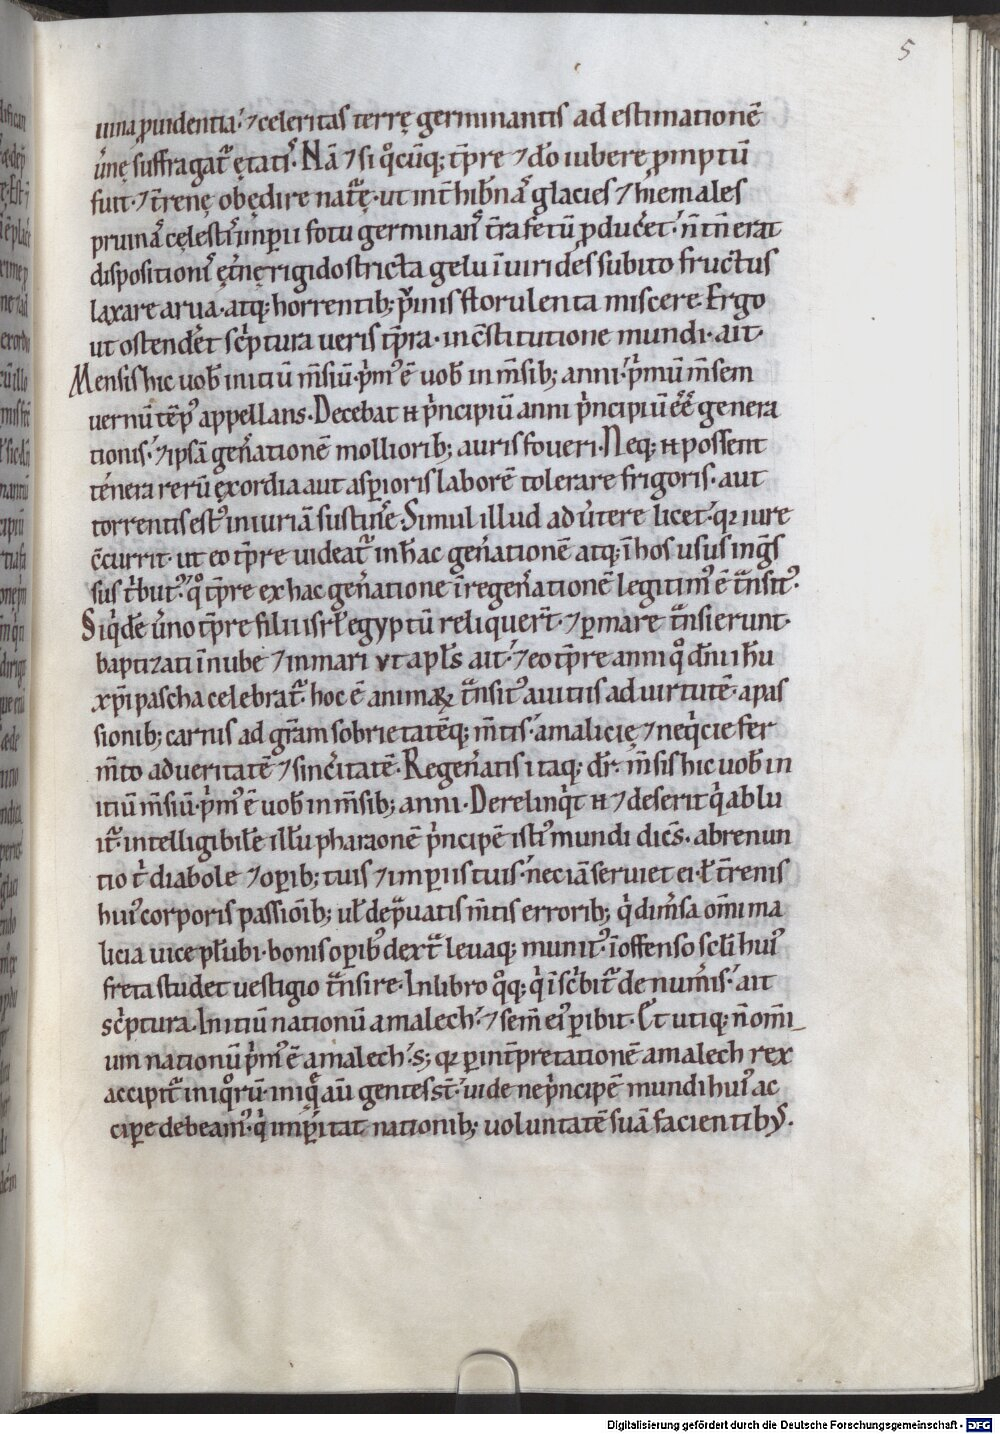 5
uina ꝓuidentia·⁊ celeritas terrę germinantis ad estimationē
u̾nę suffragat᷑ ętati· Nā ⁊ si q̊cūq; tp̄re ⁊ dō iubere ꝓmptū
fuit·⁊ t̄renę obędire nat᷑ę·ut int̄ hib̾nas glacies ⁊ hiemales
pruinas cęlestis imp̄ii fotu germinans t̄ra fetū ꝓducet· n̄ tn̄ erat
dispositionis ęt̾nę rigido stricta gelu ī uirides subito fructus
laxare arua·atq; horrentib; p̾inis florulenta miscere Ergo
ut ostenderet sc̾ptura ueris tp̄ra·in c̄stitutione mundi·ait·
Mensis hic uob̄ initiū m̄siū·p̾mꝰ ē uob̄ in m̄sib; anni·p̾mū m̄sem
uernū tēpꝰ appellans·Decebat N p̾ncipiū anni p̾ncipiū ēē genera
tionis·⁊ ipsā gen̾ationē mollioribꝫ auris foueri·Neq; N possent
tenera rerū exordia aut asp̄ioris laborē tolerare frigoris·aut
torrentis estꝰ iniuriā sustin̾e·Simul illud aduertere licet·qꝛ iure
c̄currit·ut eo tp̄re uideat᷑ in hac gen̾ationē atq; ī hos usus ings̄
sus t̾butꝰ·q̊ tp̄re ex hac gen̾atione ī regen̾ationē legitimꝰ ē t᷑nsitꝰ·
Siq̾dē u̾no tp̄re filii isrł egyptū reliquer̄t·⁊ p̄ mare t᷑nsierunt·
baptizati ī nube ⁊ in mari vt apłs ait·⁊ eo tp̄re anni q̊ dn̄i ih̄u
xp̄i pascha celebrat᷑·hoc ē animaꝝ t᷑nsitꝰ a uitiis ad uirtutē·a pas
sionib; carnis ad gr̄am sobrietatēq; m̄tis·a malicię ⁊ neq̾cie fer
m̄to ad ueritatē ⁊ sinc̾itatē·Regen̾atis itaq; dr̄·m̄sis hic uob̄ in
itiū m̄siū·p̾mꝰ ē uob̄ in m̄sib; anni·Derelinq̾t N ⁊ deserit q̾ ablu
it᷑·intelligibilē illū pharaonē p̾ncipē istiꝰ mundi dicēs·abrenun
tio t̾ diabole ⁊ opib; tuis ⁊ imp̄iis tuis·nec iā seruiet ei·ł t̄renis
huiꝰ corporis passiōib; uł dep᷑uatis m̄tis errorib; q̾ dim̾sa om̄i ma
licia uice plūbi·bonis opibꝰ dext᷑ leuaq; munitꝰ īoffenso scłi huiꝰ
freta studet uestigio t᷑nsire·In libro q̊q; q̾ īsc̾bit᷑ de num̾is·ait
sc̾ptura·Initiū nationū amalech·⁊ semē eiꝰ p̄ibit·Et utiq; n̄ om̄i
um nationū p̾mꝰ ē amalech·s; qꝛ p̄ int̄pretationē amalech rex
accipit᷑ iniq̊rū·iniq̊s aūt gentes st̄·uide ne p̾ncipē mundi huiꝰ ac
cip̄e debeamꝰ·q̾ imp̄itat nationib; uoluntatē suā facientibꝰ·
Digitalisierung gefördert durch die Deutsche Forschungsgemeinschaft - DFG